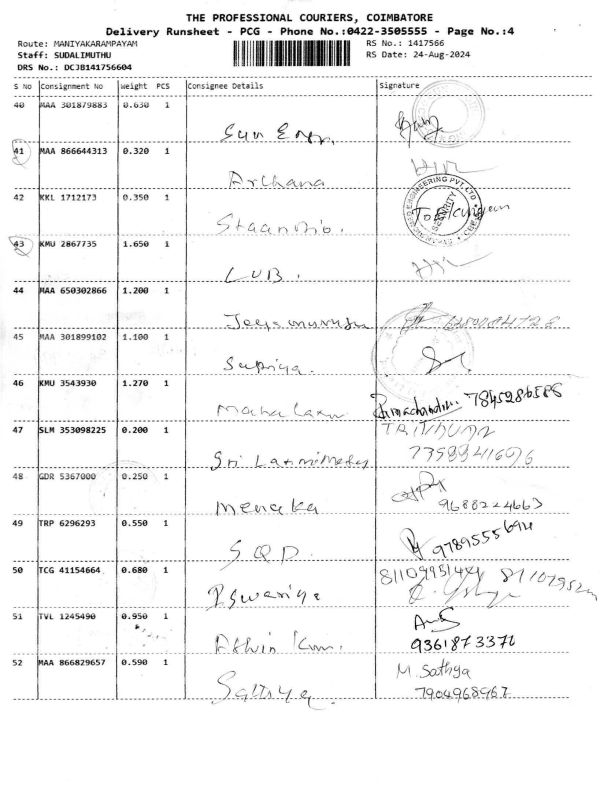 THE PROFESSIONAL COURIERS, COIMBATORE
Delivery Runsheet - PCG - Phone No.:0422-3505555 - Page No.:4
Route: MANIYAKARAMPAYAM RS No.: 1417566
Staff: SUDALIMUTHU RS Date: 24-Aug-2024
DRS No.: DCJB141756604
S No Consignment No Weight PCS Consignee Details Signature
40 MAA 301879883 0.630 1
Sun Engg.
41 MAA 866644313 0.320 1
Archana
42 KKL 1712173 0.350 1
ENGINEERING PVT LTD
SECURITY
43 KMU 2867735 1.650 1
LUB.
44 MAA 650302866 1.200 1
45 MAA 301899102 1.100 1
Supriya.
46 KMU 3543930 1.270 1
Mahalaxm Ramachandran 7845286586
47 SLM 353098225 0.200 1
Sri 7358941696
48 GDR 5367000 0.250 1
Menaka 9688224663
49 TRP 6296293 0.550 1
SQD. 9789555694
50 TCG 41154664 0.680 1
51 TVL 1245490 0.950 1
Athvin Kum. 9361873370
52 MAA 866829657 0.590 1
M. Sathya
Sathya 7904968967